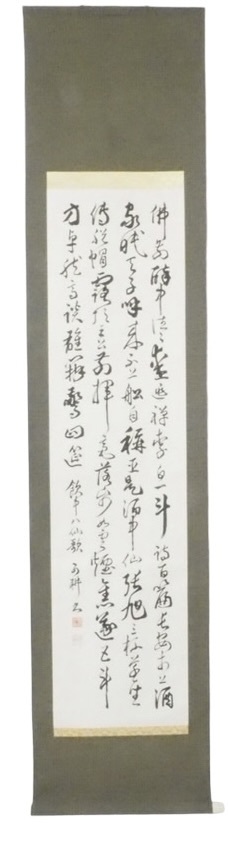 佛前醉中往々愛逃禅李白一斗詩百篇長安市上酒
家眠天子呼来不上船自称臣是酒中仙張旭三杯草聖
傳脱帽露頂王公前揮毫落紙如雲煙焦遂五斗
方卓然高談雄辯驚四筵 飲中八仙歌